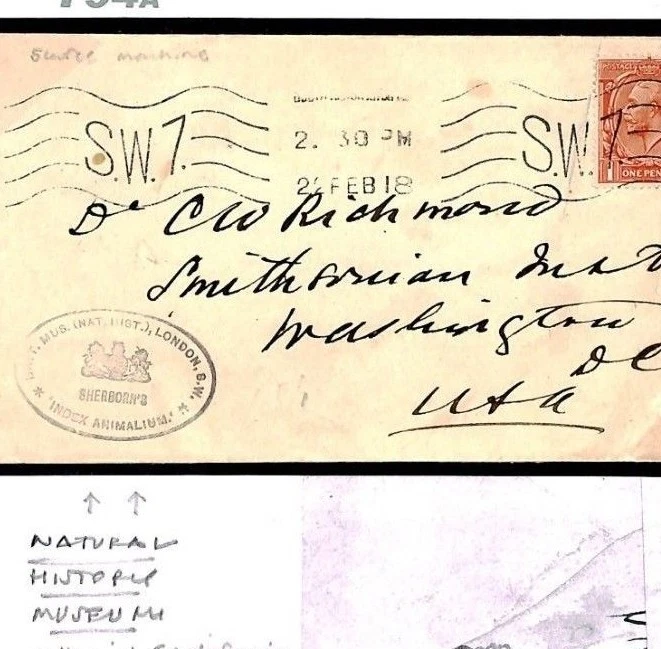 794A
Scarce machine
S.W.7.
2. 30 PM
22 FEB 18
S.W.7
POSTAGE
1 ONE PEN
Dr C W Richmond
Smithsonian Inst
Washington
D C
USA
BRIT. MUS. (NAT. HIST.), LONDON, S.W.
SHERBORN'S
"INDEX ANIMALIUM."
NATURAL
HISTORY
MUSEUM